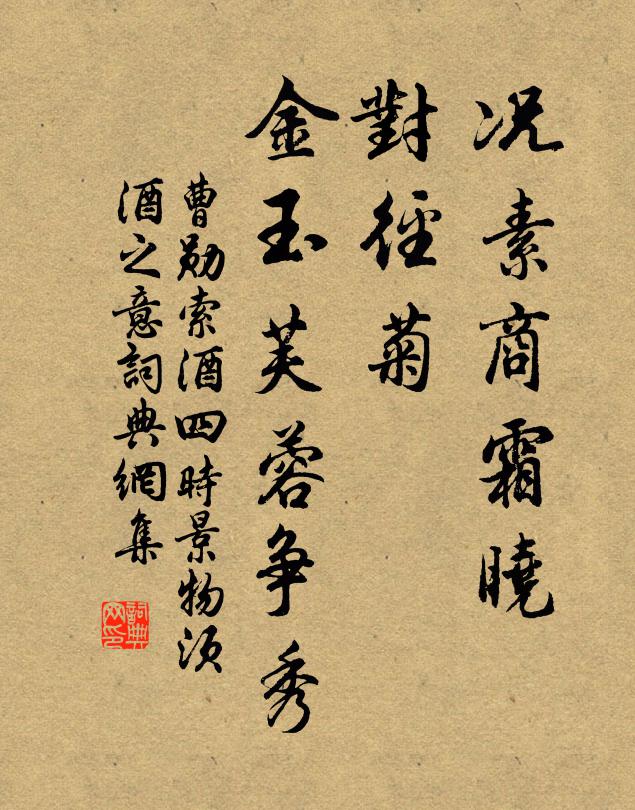 况素商霜曉
對徑菊
金玉芙蓉争秀
曹勛索酒四時景物須
酒之意詞典網集
詞典網印